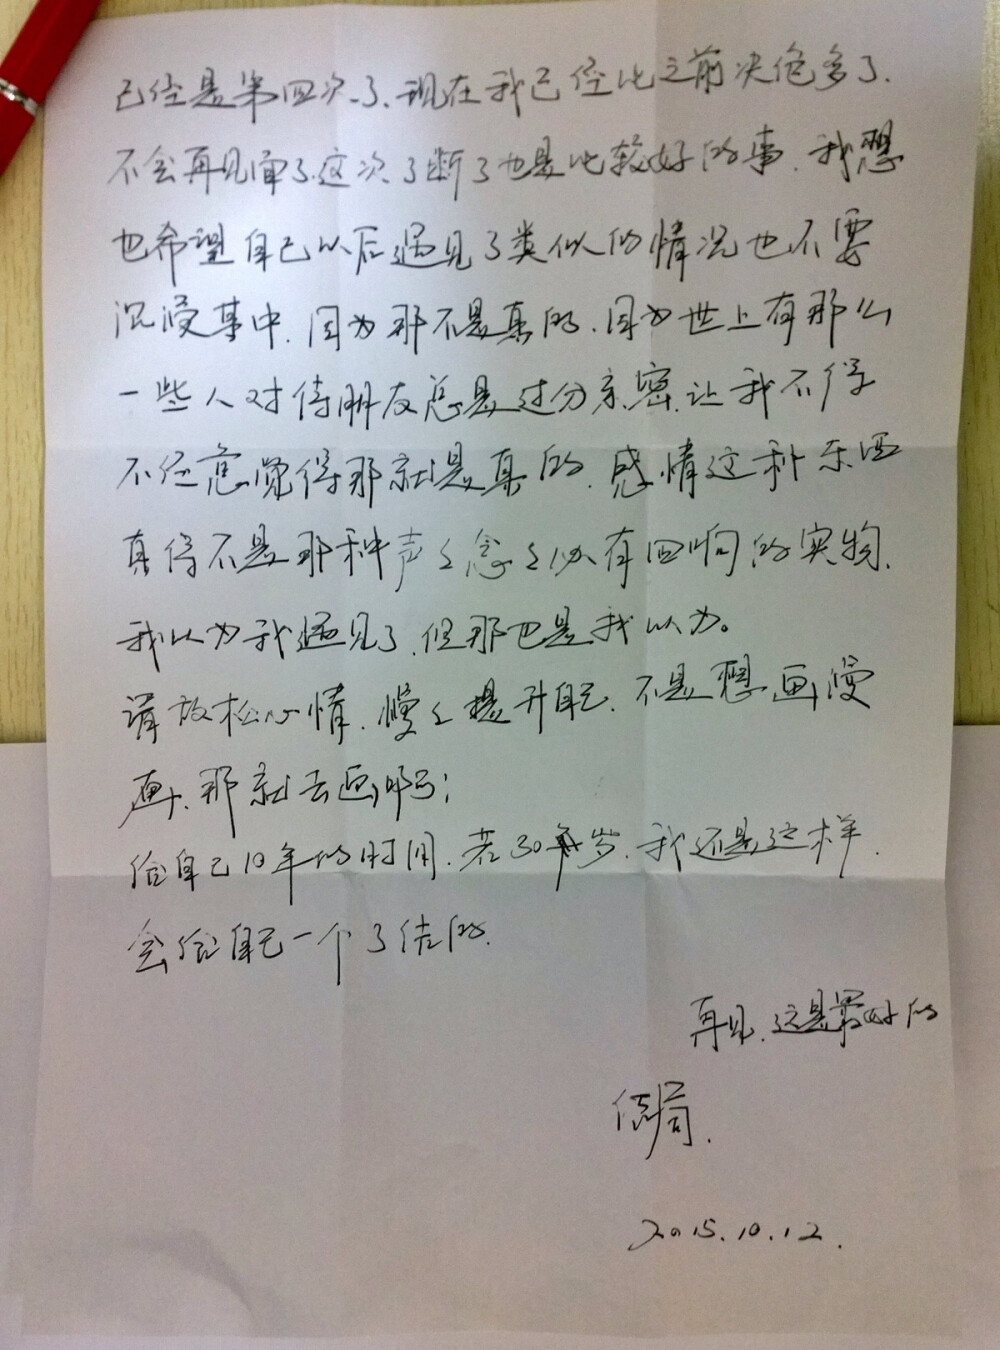 已经是第四次了、现在我已经比之前决绝多了、
不会再见面了这次了断了也是比较好的事、我想
也希望自己以后遇见了类似的情况也不要
沉浸其中、因为那不是真的、因为世上有那么
一些人对待朋友总是过分亲密、让我不得
不经意觉得那就是真的、感情这种东西
真得不是那种声々念々必有回响的实物、
我以为我遇见了、但那也是我以为。
请放松心情、慢々提升自己、不是想画漫
画、那就去画啊；
给自己10年的时间、若30岁、我还是这样、
会给自己一个了结的、
再见、这是最好的
结局、
2015.10.12.